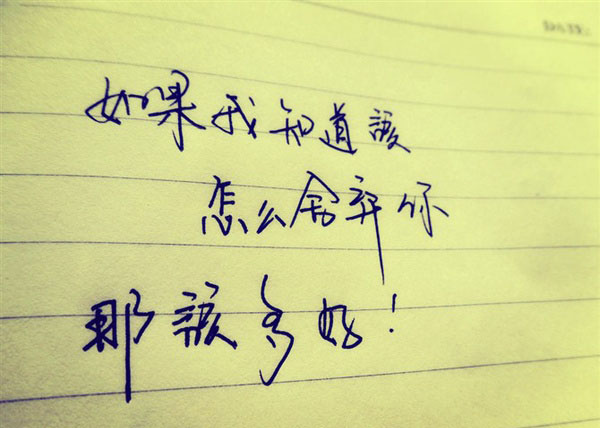 如果我知道該
怎么舍弃你
那該多好！